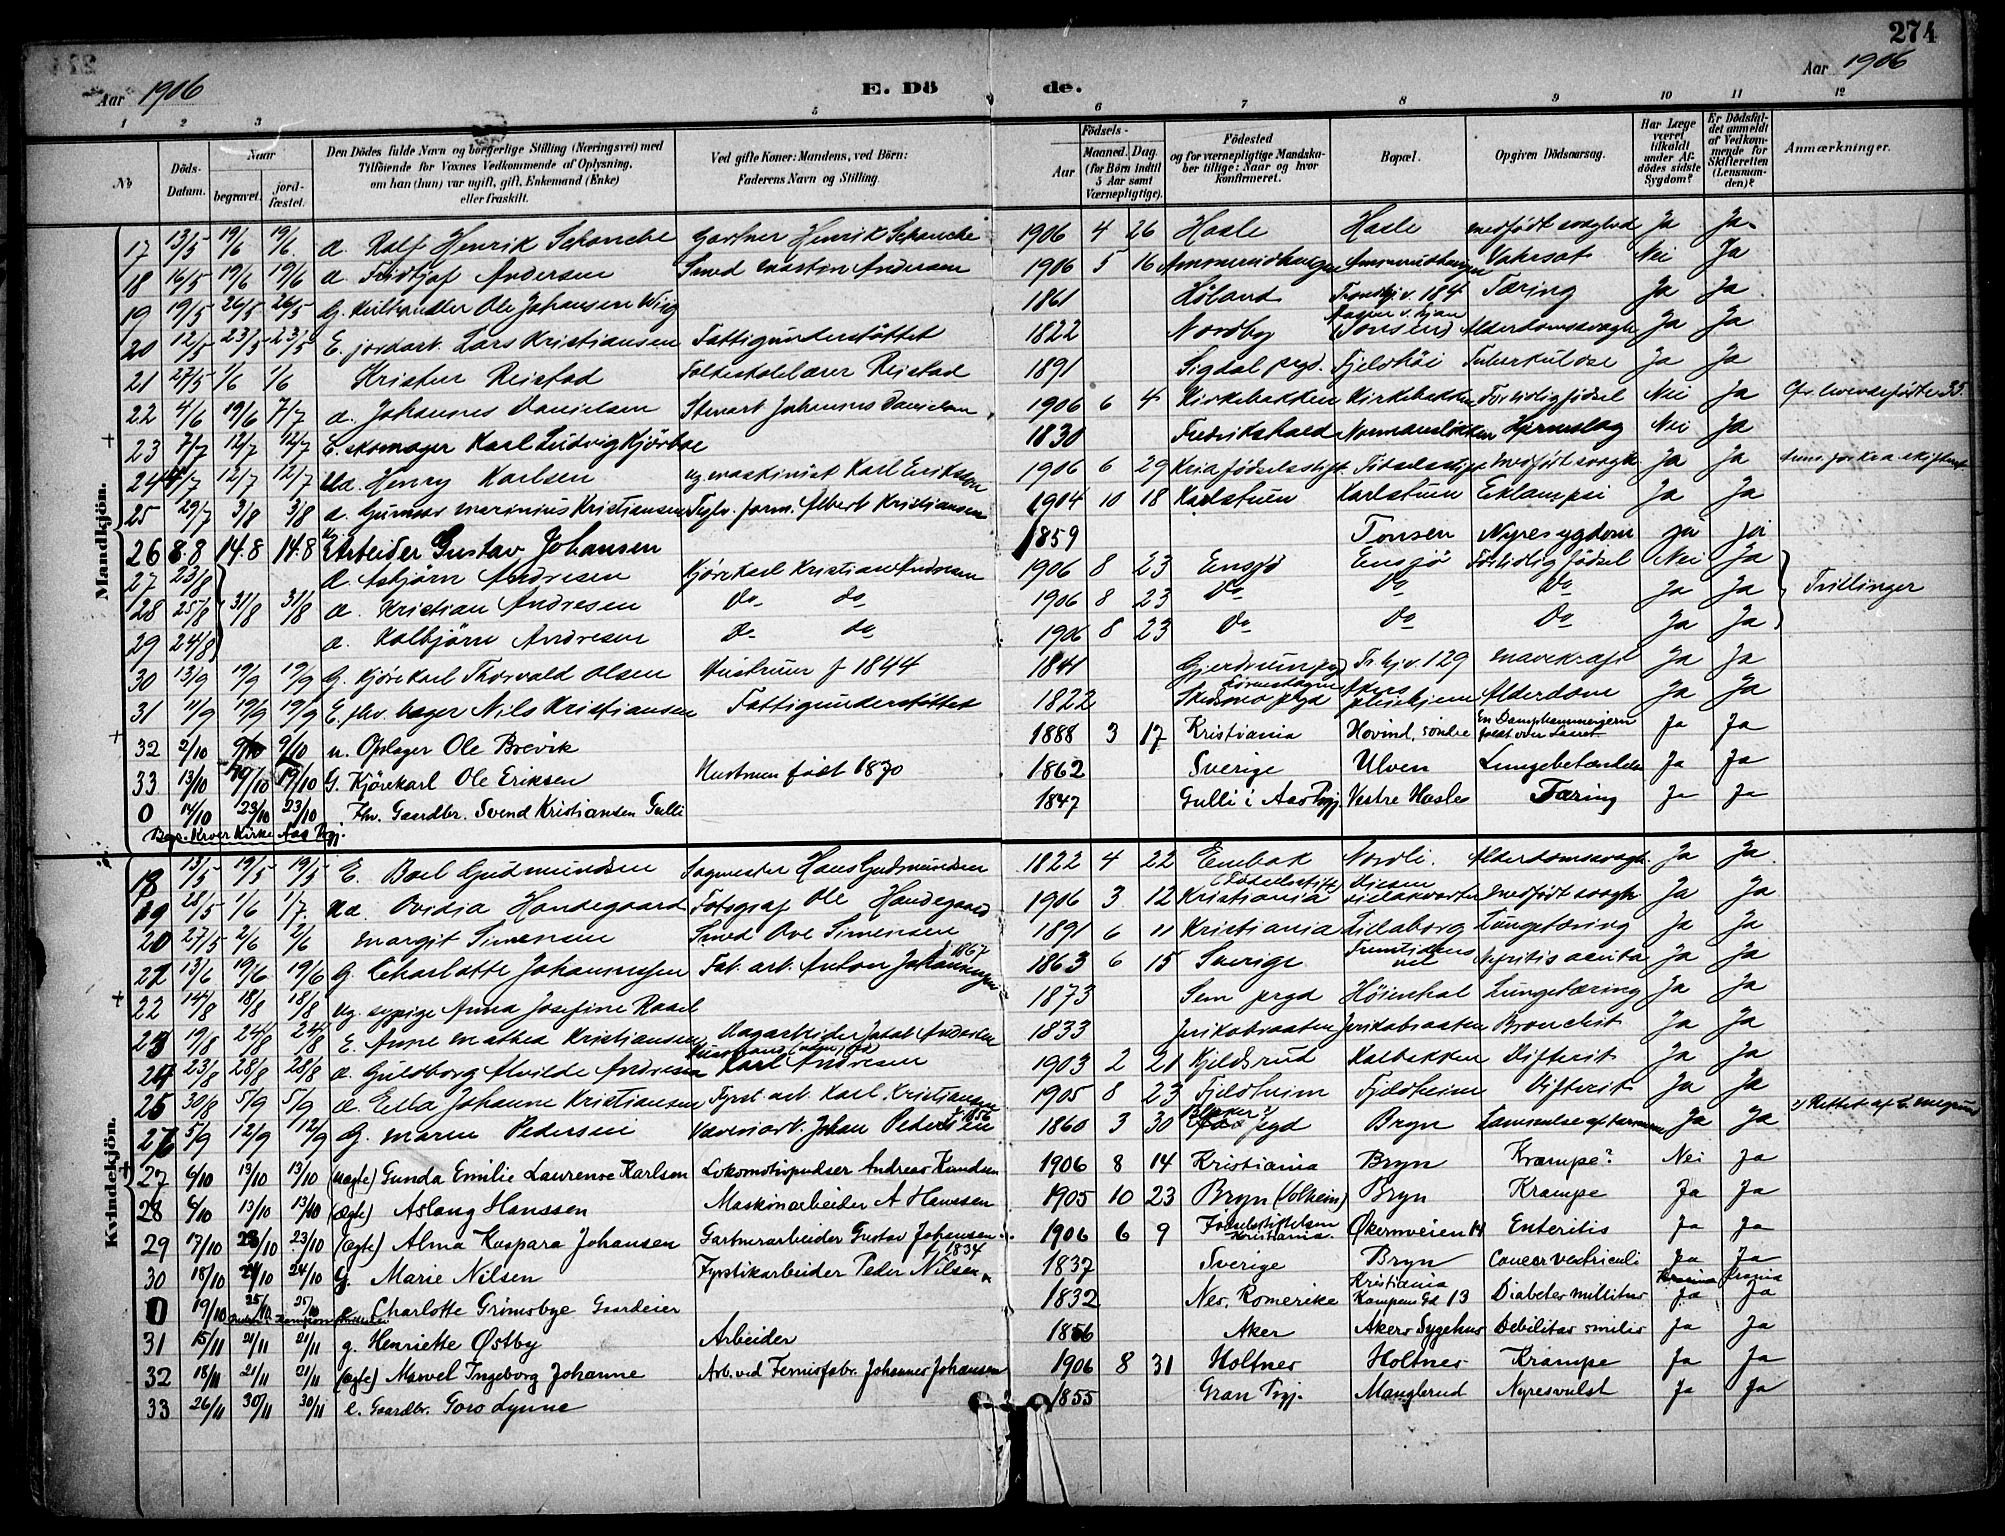 274
Aar 1906
E. Dö de.
Aar 1906
1 2 3 5 6 7 8 9 10 11 12
No
Döds-Datum.
Naar
begravet.
jord-fæstet.
Den Dödes fulde Navn og borgerlige Stilling (Næringsvei) med
Tilföiende for Voxnes Vedkommende af Oplysning,
om han (hun) var ugift, gift, Enkemand (Enke)
eller fraskilt.
Ved gifte Koner: Mandens, ved Börn:
Faderens Navn og Stilling.
Födsels-
Aar
Maaned. Dag.
(for Börn indtil
5 Aar samt
Værnepligtige).
Födested
og for værnepligtige Mandska-
ber tillige: Naar og hvor
konfirmeret.
Bopæl.
Opgiven Dödsaarsag.
Har Læge
været
tilkaldt
under Af-
dödes sidste
Sygdom?
Er Dödsfal-
det anmeldt
af Vedkom-
mende for
Skifteretten
(Lensman-
den)?
Anmærkninger.
Mandkjön.
17 13/5 19/6 19/6 a. Ralf Henrik Schanche Gartner Henrik Schanche 1906 4 26 Hasle Hasle medfödt svaghed Ja Ja
18 16/5 19/6 19/6 a. Fridtjof Andersen Smed Martin Andersen 1906 5 16 Ammerudhaugen Ammerudhaugen Vakrsot Nei Ja
19 19/5 26/5 26/5 G. Ole Johansen Wiig 1861 Høland Trondhj.v. 184 Tæring Ja Ja
20 12/5 23/5 23/5 E. jordarb. Lars Kristiansen Fattigunderstöttet 1822 Nordby (Tonsen) Alderdomssvagh. Ja Ja
21 27/5 1/6 1/6 Krister Reistad Folkeskolelærer Reistad 1891 Sigdal prgd. Fjeldhöi Tuberkulose Ja Ja
22 4/6 19/6 7/7 a. Johannes Danielsen Stewart Johannes Danielsen 1906 6 4 Kirkebakken Kirkebakken For tidlig födsel Nei Ja Cfr. levendefödte 35.
23 7/7 12/7 12/7 E. skomager Karl Ludvig Kjörboe 1830 Fredrikshald Normanslökken Hjerneslag Nei Ja
24 4/7 12/7 12/7 ua. Henry Karlsen ug maskinist Karl Eriksson 1906 6 29 Kria födselsstift. Födselsstift. medfödt svagh. Ja Ja
25 29/7 3/8 3/8 a. Gunnar Marinius Kristiansen Teglv. form. Albert Kristiansen 1904 10 18 Karlstuen Karlstuen Eklampsi Ja Ja
26 8.8 14.8 14.8 Arbeider Gustav Johansen 1859 Tonsen Nyresygdom ja ja
27 23/8 a. Asbjörn Andresen Kjörekarl Kristian Andresen 1906 8 23 Ensjö Ensjö For tidlig födsel Nei Ja
28 25/8 31/8 31/8 a. Kristian Andresen do do 1906 8 23 do do do Ja Ja Trillinger
29 24/8 a. Kolbjörn Andresen do do 1906 8 23 do do do Ja Ja
30 13/9 19/9 19/9 G. Kjörekarl Thorvald Olsen Hustruen f 1844 1841 Gjerdrum prgd Tr.hj.v. 129 Mavekræft Ja Ja
31 11/9 19/9 19/9 E. fhv. bager Nils Kristiansen Fattigunderstöttet 1822 Skedsmo prgd Akers pleiehjem Alderdom Ja Ja
32 2/10 9/10 9/10 u. Opslager Ole Brevik 1888 3 17 Kristiania Hovind, söndre En Damphammerjern faldt over Laaret Ja Ja
33 13/10 19/10 19/10 G. Kjörekarl Ole Eriksen Hustruen född 1870 1862 Sverige Ulven Lungebetændelse Ja Ja
0 14/10 23/10 23/10 Fhv. Gaardbr. Svend Kristiansen Gulli 1847 Gulli i Aas Prgj Vestre Hasle Tæring Ja Ja
Begr. Kroer Kirke Aas Prgj.
Kvindekjön.
18 13/5 19/5 19/5 E. Boel Gudmundsen Sagmester Hans Gudmundsen 1822 4 22 Enebak Nordli. Alderdomssvagh. Ja Ja
19 28/5 1/6 1/7 ua. Ovidia Handegaard Fotograf Ole Handegaard 1906 3 12 (Födselsstift) Kristiania medfödt svagh. Ja Ja
20 27/5 2/6 2/6 Margit Simensen Smed Ove Simensen 1891 6 11 Kristiania Lilleborg Lungetæring Ja Ja
21 13/6 19/6 19/6 G. Charlotte Johannessen Fab. arb. Anton Johannessen f 1867 1863 6 15 Sverige Fremtidens vei Nefritis acuta Ja Ja
22 14/8 18/8 18/8 ug. sypige Anna Josefine Raael 1873 Sem prgd Höienhal Lungetæring Ja Ja
23 19/8 24/8 24/8 E. Anne Mathea Kristiansen Dagarbeider Jakob Andersen 1833 Jerikobraaten Jerikobraaten Bronchit Ja Ja
24 23/8 28/8 28/8 a. Guldborg Alvilde Andresen Karl Andresen 1903 2 21 Kjeldsrud Kalbakken Difterit Ja Ja
25 30/8 5/9 5/9 a. Ella Johanne Kristiansen Fyrst. arb. Karl Kristiansen 1905 8 23 Fjeldheim Fjeldheim Difterit Ja Ja
26 5/9 12/9 12/9 G. Maren Pedersen Væveriarb. Johan Pedersen f 1856 1860 3 30 prgd Bryn Lammelse af tarmen Ja Ja
27 6/10 13/10 13/10 (uægte) Gunda Emilie Laurence Karlsen Lokomotivpudser Andreas Knudsen 1906 8 14 Kristiania Bryn Krampe? Nei Ja
28 6/10 13/10 13/10 (ægte) Aslaug Hanssen Maskinarbeider A Hanssen 1905 10 23 Bryn (Solheim) Bryn Krampe Ja Ja
29 17/10 23/10 23/10 (ægte) Alma Kaspara Johansen Gartnerarbeider Gustav Johansen 1906 6 9 Födselsstiftelsen Kristiania. Økernveien 14 Enteritis Ja Ja
30 18/10 24/10 24/10 G. Marie Nilsen Fyrstikarbeider Peder Nilsen f 1834 1837 Sverige Bryn Cancer ventriculi Ja Ja
0 19/10 25/10 25/10 e. Charlotte Grimsbye Gaardeier 1832 Nes, Romerike Kristiania Kampens Gd 13 Diabetes mellitus Ja Ja
31 15/11 21/11 21/11 g. Henriette Østby Arbeider 1856 Aker Akers Sygehus Debilitas senilis Ja Ja
32 18/11 21/11 21/11 (ægte) Marvel Ingeborg Johanne Arb. ved Fernisfabr. Johannes Johansen 1906 8 31 Holtnes Holtnes Krampe Ja Ja
33 26/11 30/11 30/11 e. Gaardbr. Goro Lynne 1855 Gran Prgj. Manglerud Nyresvulst Ja Ja